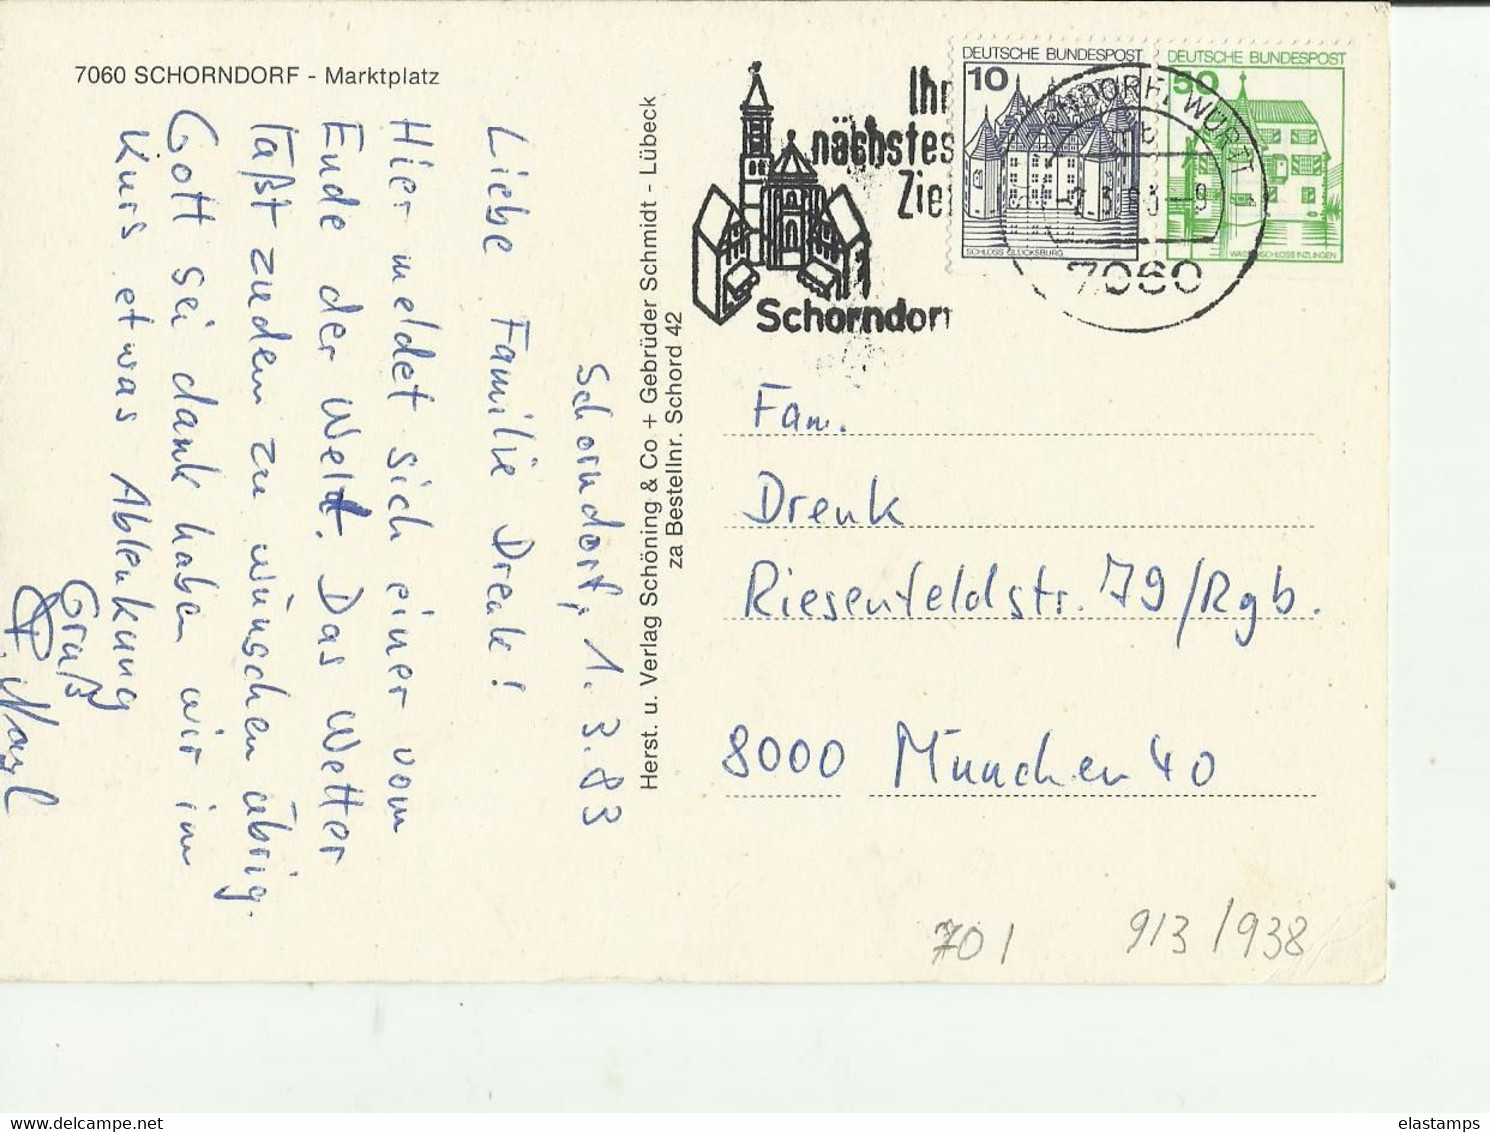 7060 SCHORNDORF - Marktplatz
Schorndorf, 1.3.83
Liebe Familie Drenk!
Hier meldet sich einer vom
Ende der Welt. Das Wetter
läßt zudem zu wünschen übrig.
Gott sei dank haben wir im
Kurs etwas Ablenkung
Gruß
Herst. u. Verlag Schöning & Co + Gebrüder Schmidt - Lübeck
za Bestellnr. Schord 42
Ihr
nächstes
Ziel
Schorndorf
DEUTSCHE BUNDESPOST
10
SCHLOSS GLÜCKSBURG
DEUTSCHE BUNDESPOST
50
WASSERSCHLOSS INZLINGEN
NDORF, WÜRTT
7060
Fam.
Drenk
Riesenfeldstr. 79/Rgb.
8000 München 40
701 913/938
elastamps